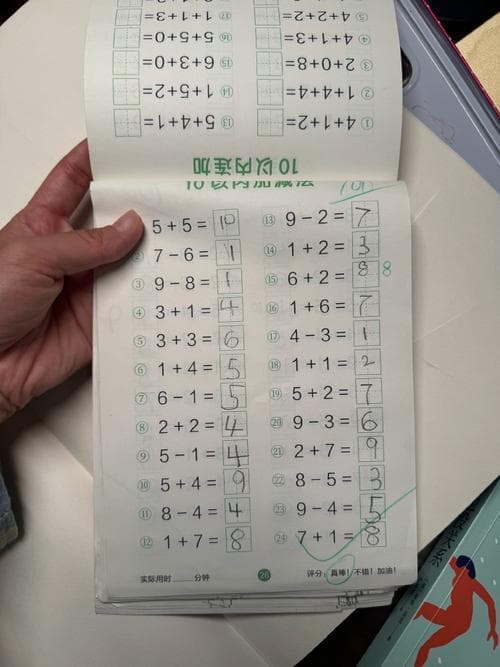 ⑤ 4+2+2=
④ 4+1+3=
⑯ 5+5+0=
③ 2+0+8=
⑮ 6+3+0=
② 1+4+4=
⑭ 1+5+2=
① 4+1+2=
⑬ 5+4+1=
10以内连加
10以内加减法
5+5=10
② 7-6=1
③ 9-8=1
④ 3+1=4
⑤ 3+3=6
⑥ 1+4=5
⑦ 6-1=5
⑧ 2+2=4
⑨ 5-1=4
⑩ 5+4=9
⑪ 8-4=4
⑫ 1+7=8
⑬ 9-2=7
⑭ 1+2=3
⑮ 6+2=8 8
⑯ 1+6=7
⑰ 4-3=1
⑱ 1+1=2
⑲ 5+2=7
⑳ 9-3=6
㉑ 2+7=9
㉒ 8-5=3
㉓ 9-4=5
㉔ 7+1=8
实际用时 分钟
26
评分：真棒！不错！加油！